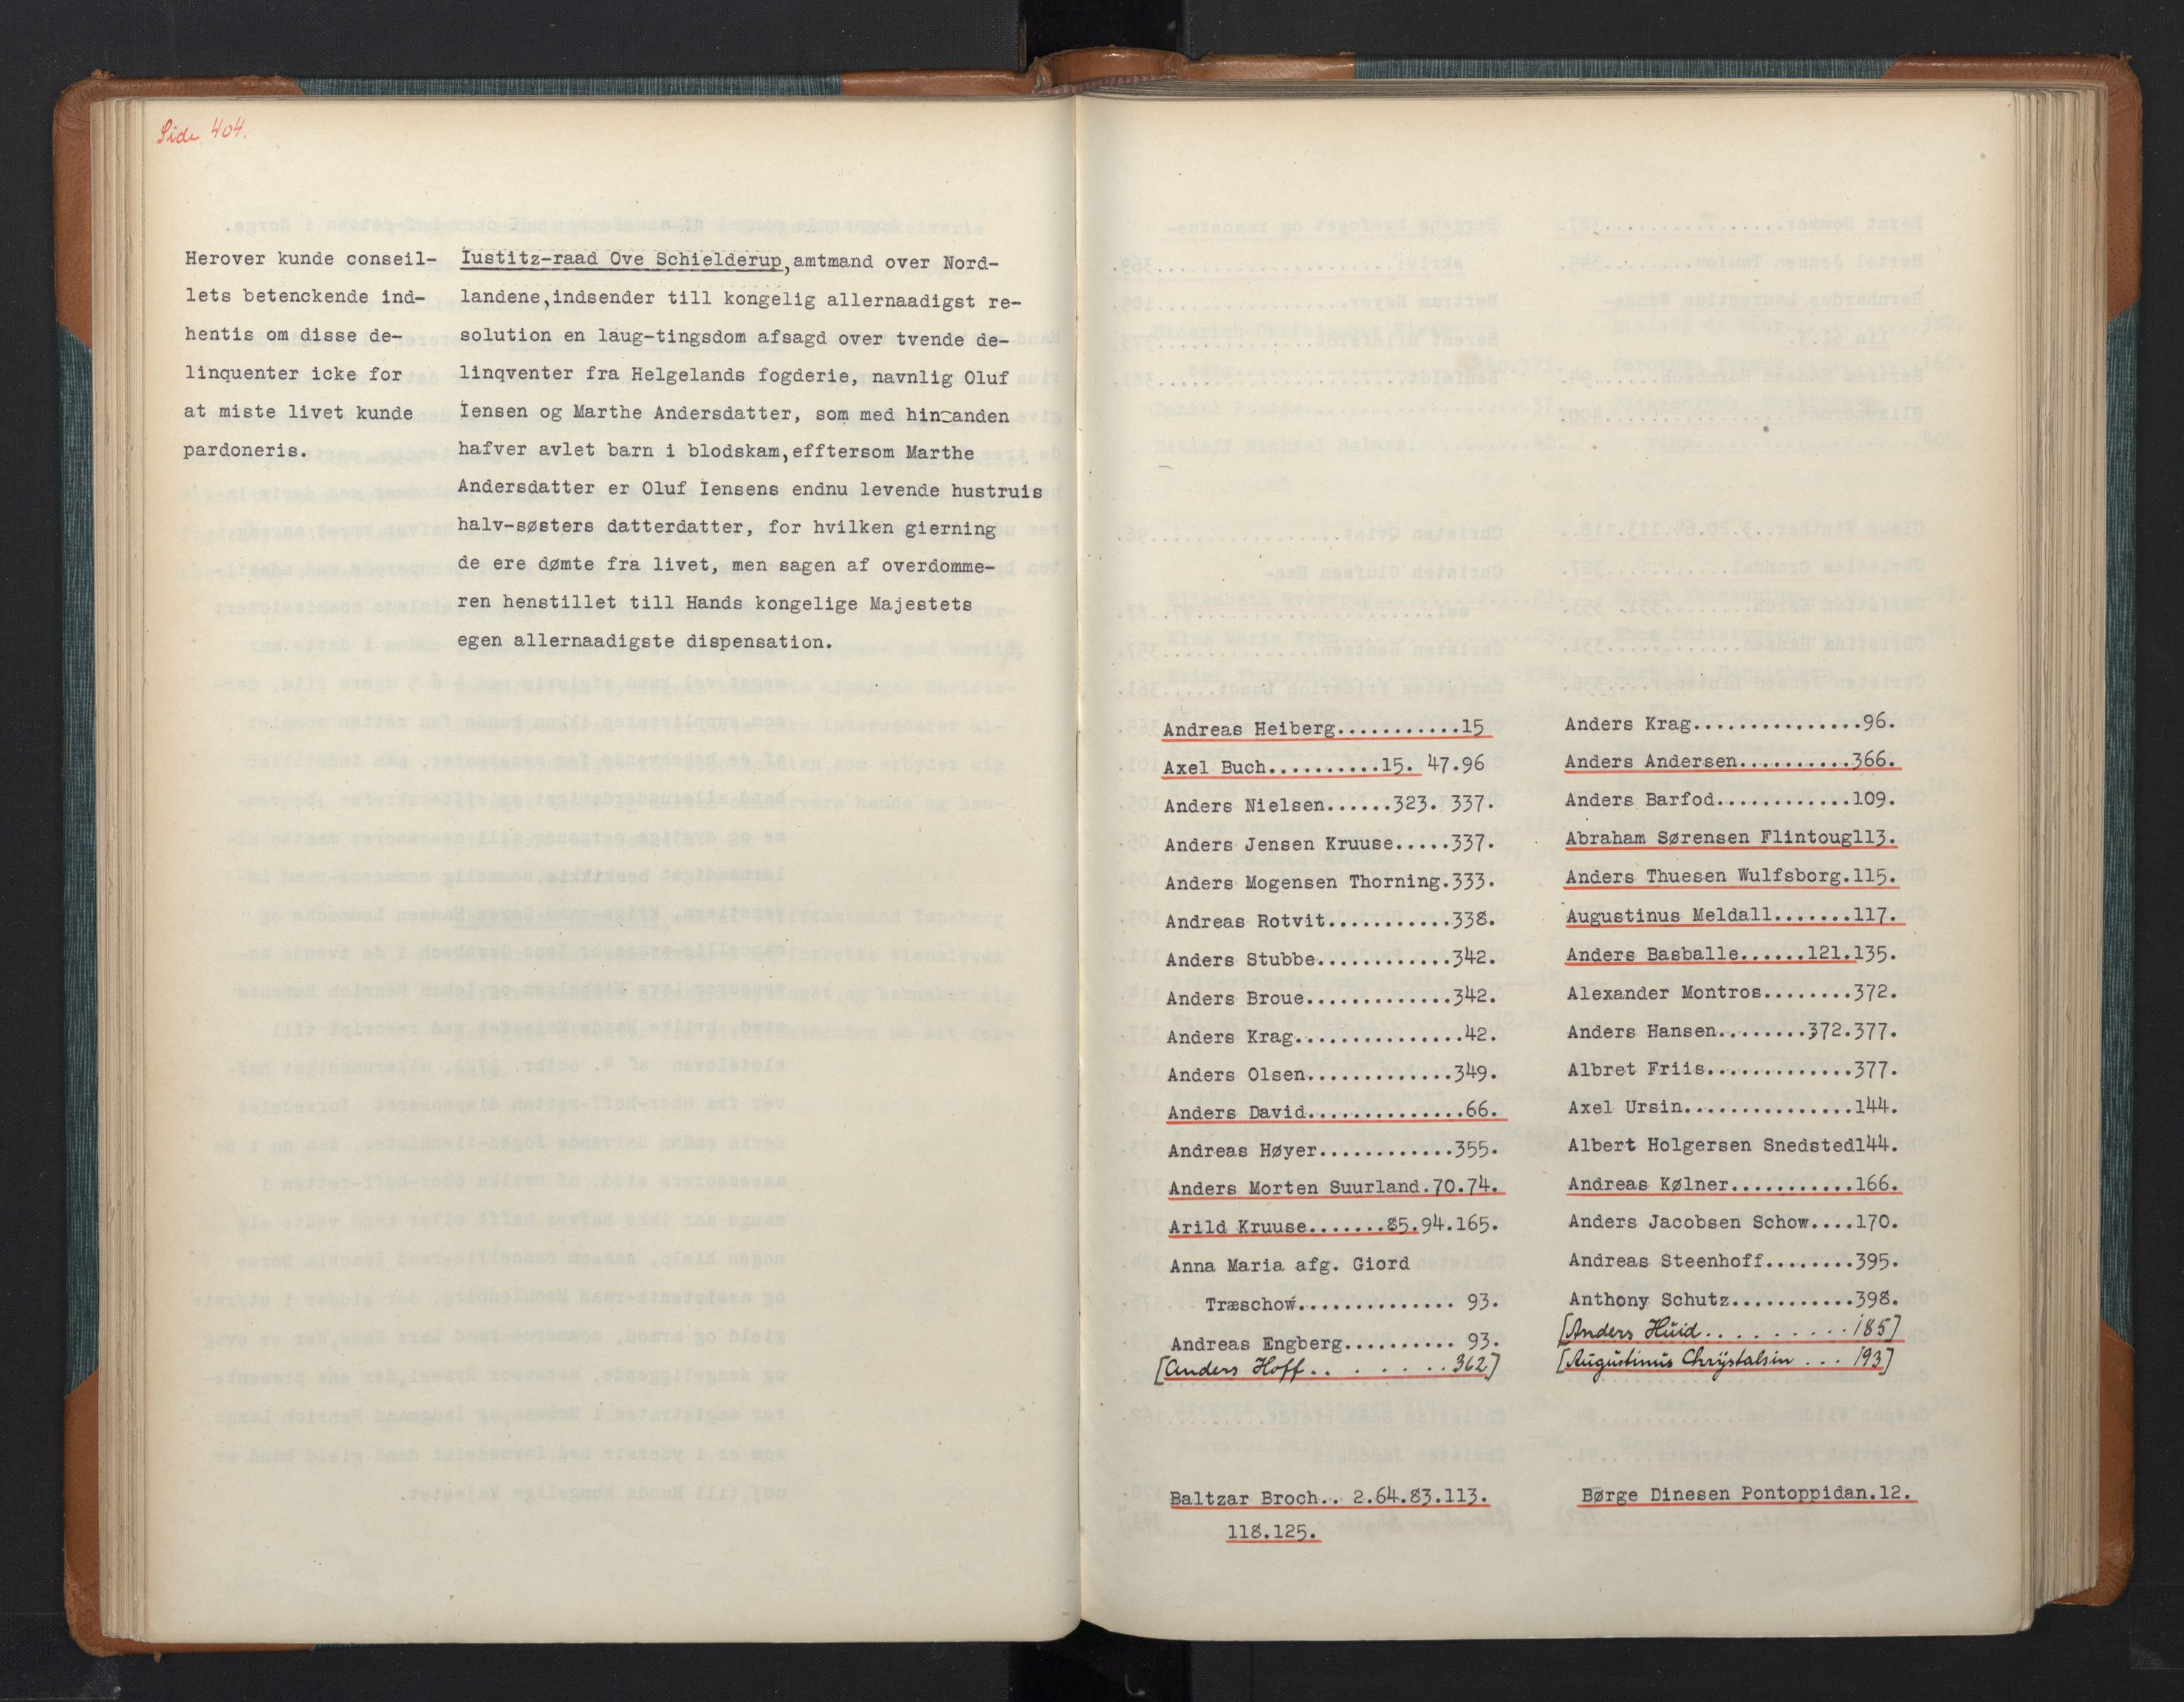 Side. 404.
Herover kunde conseil-
lets betenckende ind-
hentis om disse de-
linquenter icke for
at miste livet kunde
pardoneris.
Iustitz-raad Ove Schielderup, amtmand over Nord-
landene, indsender till kongelig allernaadigst re-
solution en laug-tingsdom afsagd over tvende de-
linqventer fra Helgelands fogderie, navnlig Oluf
Iensen og Marthe Andersdatter, som med hinanden
hafver avlet barn i blodskam, efftersom Marthe
Andersdatter er Oluf Iensens endnu levende hustruis
halv-søsters datterdatter, for hvilken gierning
de ere dømte fra livet, men sagen af overdomme-
ren henstillet till Hands kongelige Majestets
egen allernaadigste dispensation.
Andreas Heiberg...........15
Axel Buch..........15. 47.96
Anders Nielsen......323. 337.
Anders Jensen Kruuse.....337.
Anders Mogensen Thorning.333.
Andreas Rotvit...........338.
Anders Stubbe............342.
Anders Broue.............342.
Anders Krag...............42.
Anders Olsen.............349.
Anders David..............66.
Andreas Høyer............355.
Anders Morten Suurland.70.74.
Arild Kruuse.......85.94.165.
Anna Maria afg. Giord
Træschow.............. 93.
Andreas Engberg.......... 93.
[Anders Hoff.. . . . . . 362]
Anders Krag...............96.
Anders Andersen..........366.
Anders Barfod............109.
Abraham Sørensen Flintoug113.
Anders Thuesen Wulfsborg.115.
Augustinus Meldall.......117.
Anders Basballe......121.135.
Alexander Montros........372.
Anders Hansen........372.377.
Albret Friis.............377.
Axel Ursin...............144.
Albert Holgersen Snedsted144.
Andreas Kølner...........166.
Anders Jacobsen Schow....170.
Andreas Steenhoff........395.
Anthony Schutz...........398.
[Anders Hüid. . . . . . . . . 185]
[Augustinus Chrÿstalsin ... 193]
Baltzar Broch.. 2.64.83.113.
118.125.
Børge Dinesen Pontoppidan.12.